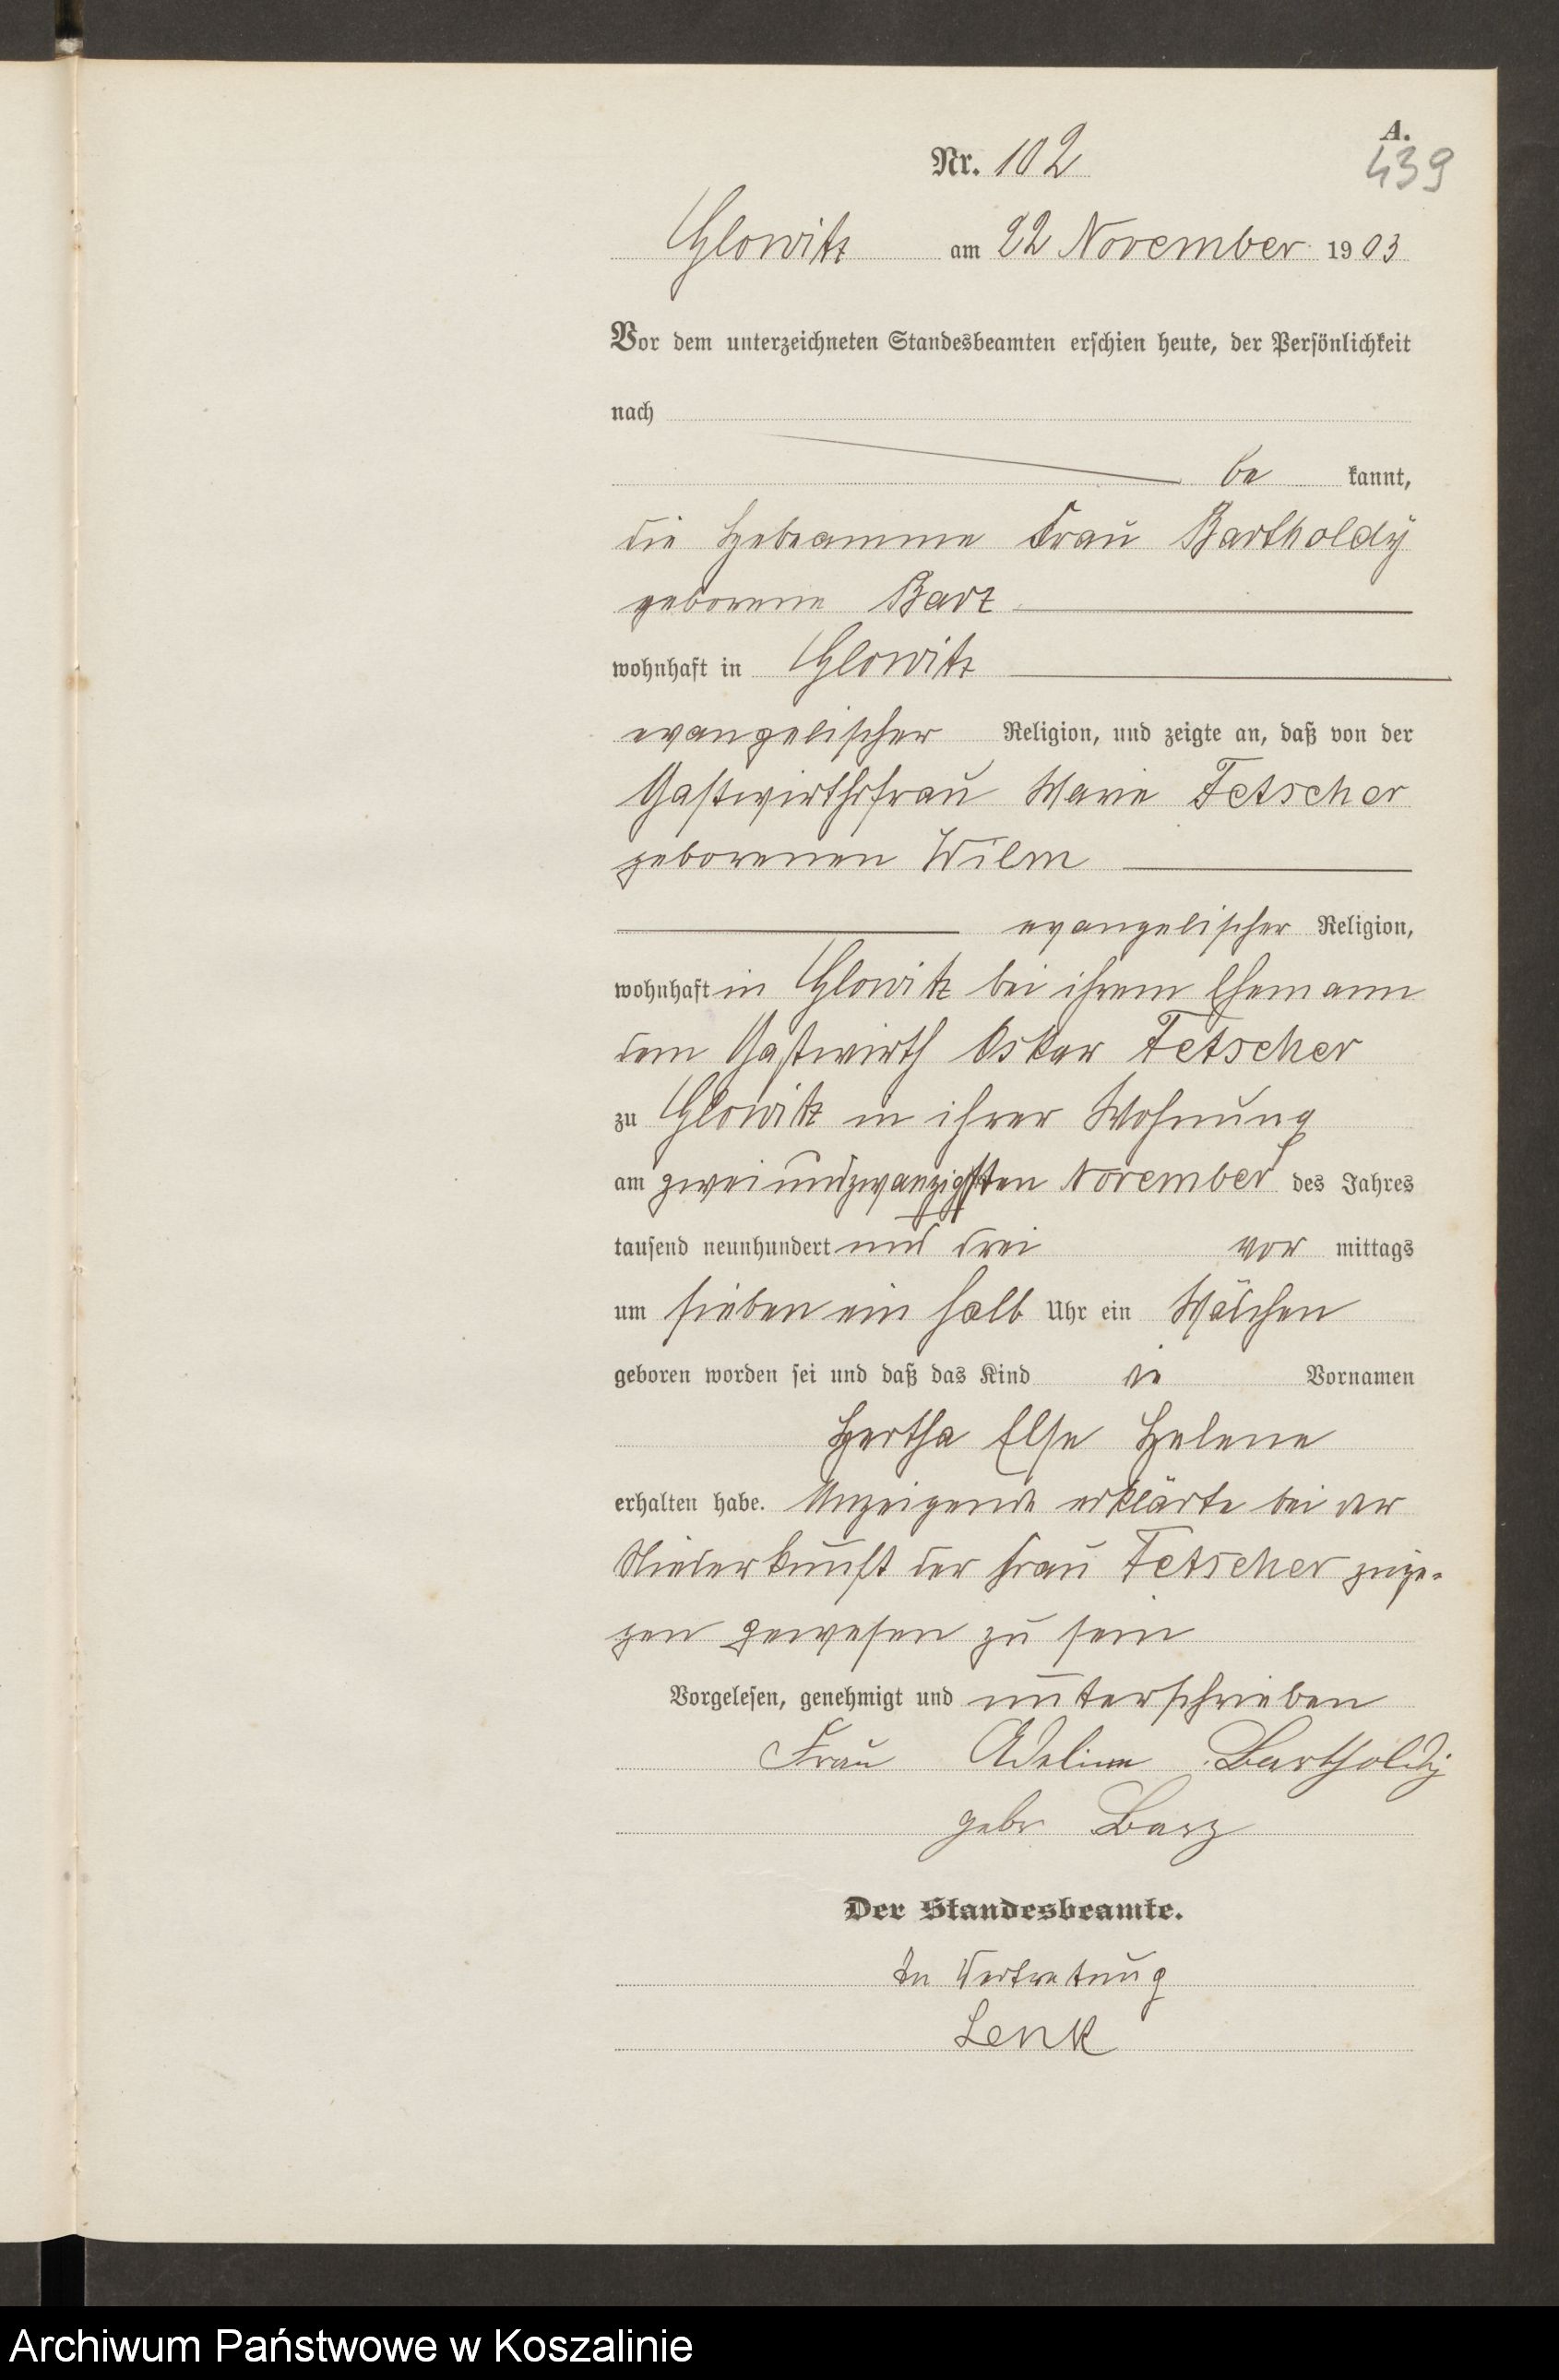 A.
Nr. 102
439
Glowitz am 22 November 1903
Vor dem unterzeichneten Standesbeamten erschien heute, der Persönlichkeit
nach
be kannt,
die Hebeamme Frau Bartholdÿ
geborene Barz
wohnhaft in Glowitz
evangelischer Religion, und zeigte an, daß von der
Gastwirthsfrau Marie Fetscher
geborenen Wilm
evangelischer Religion,
wohnhaft in Glowitz bei ihrem Ehemann
dem Gastwirth Oskar Fetscher
zu Glowitz in ihrer Wohnung
am zweiundzwanzigsten November des Jahres
tausend neunhundert und drei vor mittags
um sieben ein halb Uhr ein Mädchen
geboren worden sei und daß das Kind die Vornamen
Hertha Else Helene
erhalten habe. Anzeigende erklärte bei der
Niederkunft der Frau Fetscher zuge-
gen gewesen zu sein
Vorgelesen, genehmigt und unterschrieben
Frau Adeline Bartholdÿ
gebr Barz
Der Standesbeamte.
In Vertretung
Lenk
Archiwum Państwowe w Koszalinie